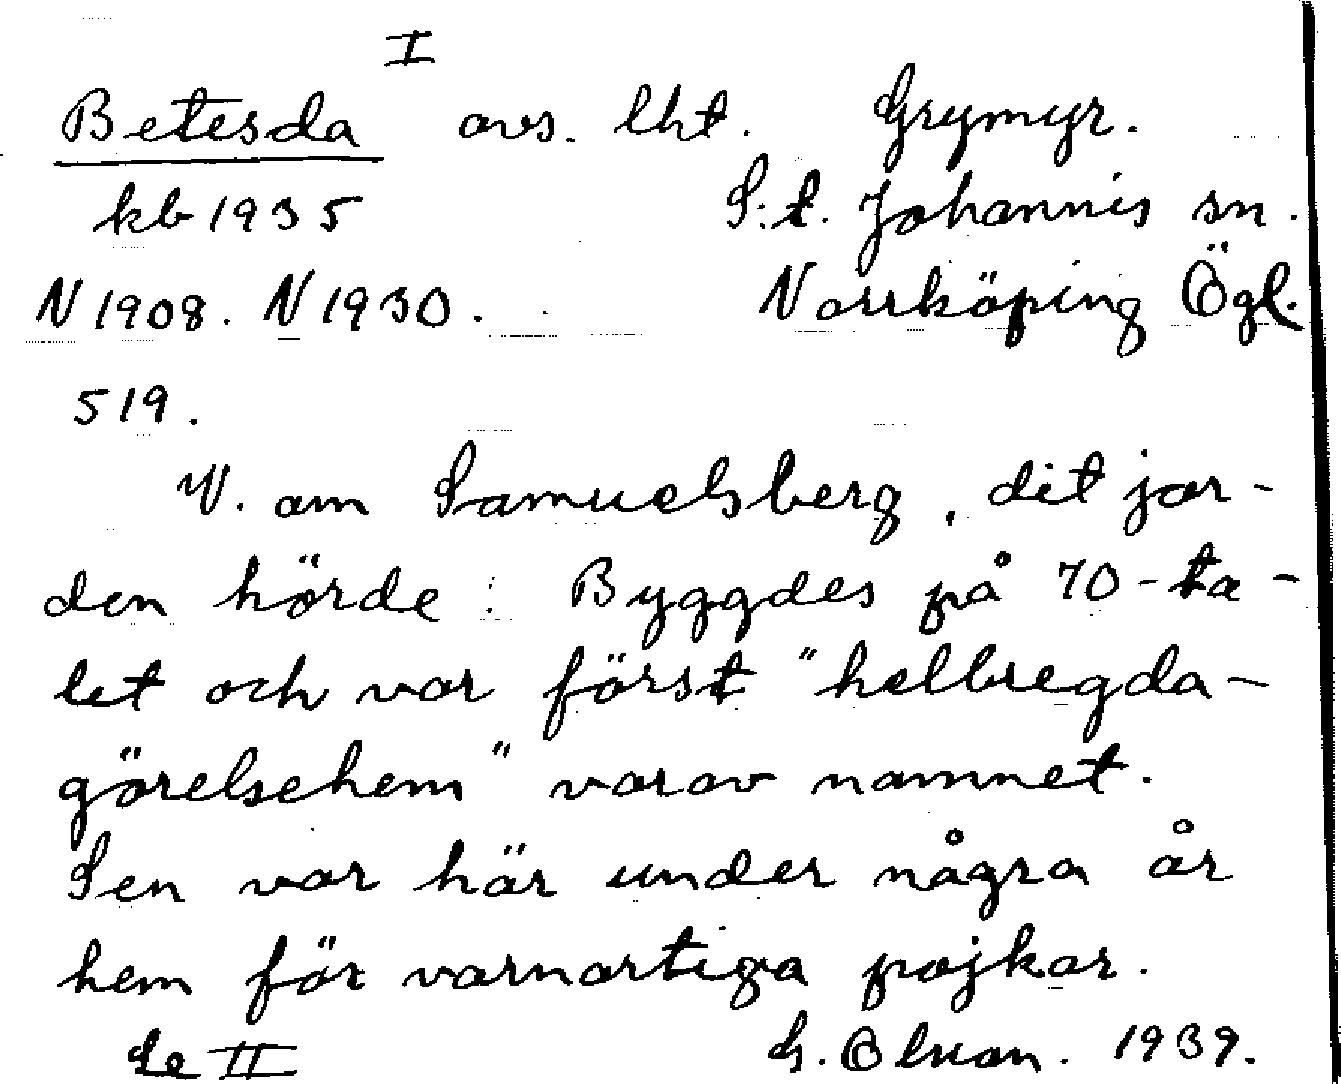 I
Betesda avs. lht. Grymyr.
kb 1935 S:t. Johannis sn.
N 1908. N 1930. Norrköping Ögl.
519.
V. om Samuelsberg, dit jor-
den hörde : Byggdes på 70-ta-
let och var först "helbregda-
görelsehem" varav namnet.
Sen var här under några år
hem för vanartiga pojkar.
Se II G. 1939.